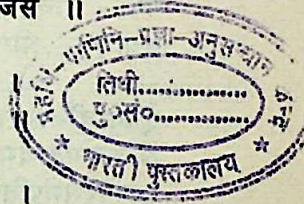 जस ॥
महर्षि-पाणिनि-प्रज्ञा-अनुसन्धान
तिथी..............
पु०सं०..............
* भारती पुस्तकालय *
।